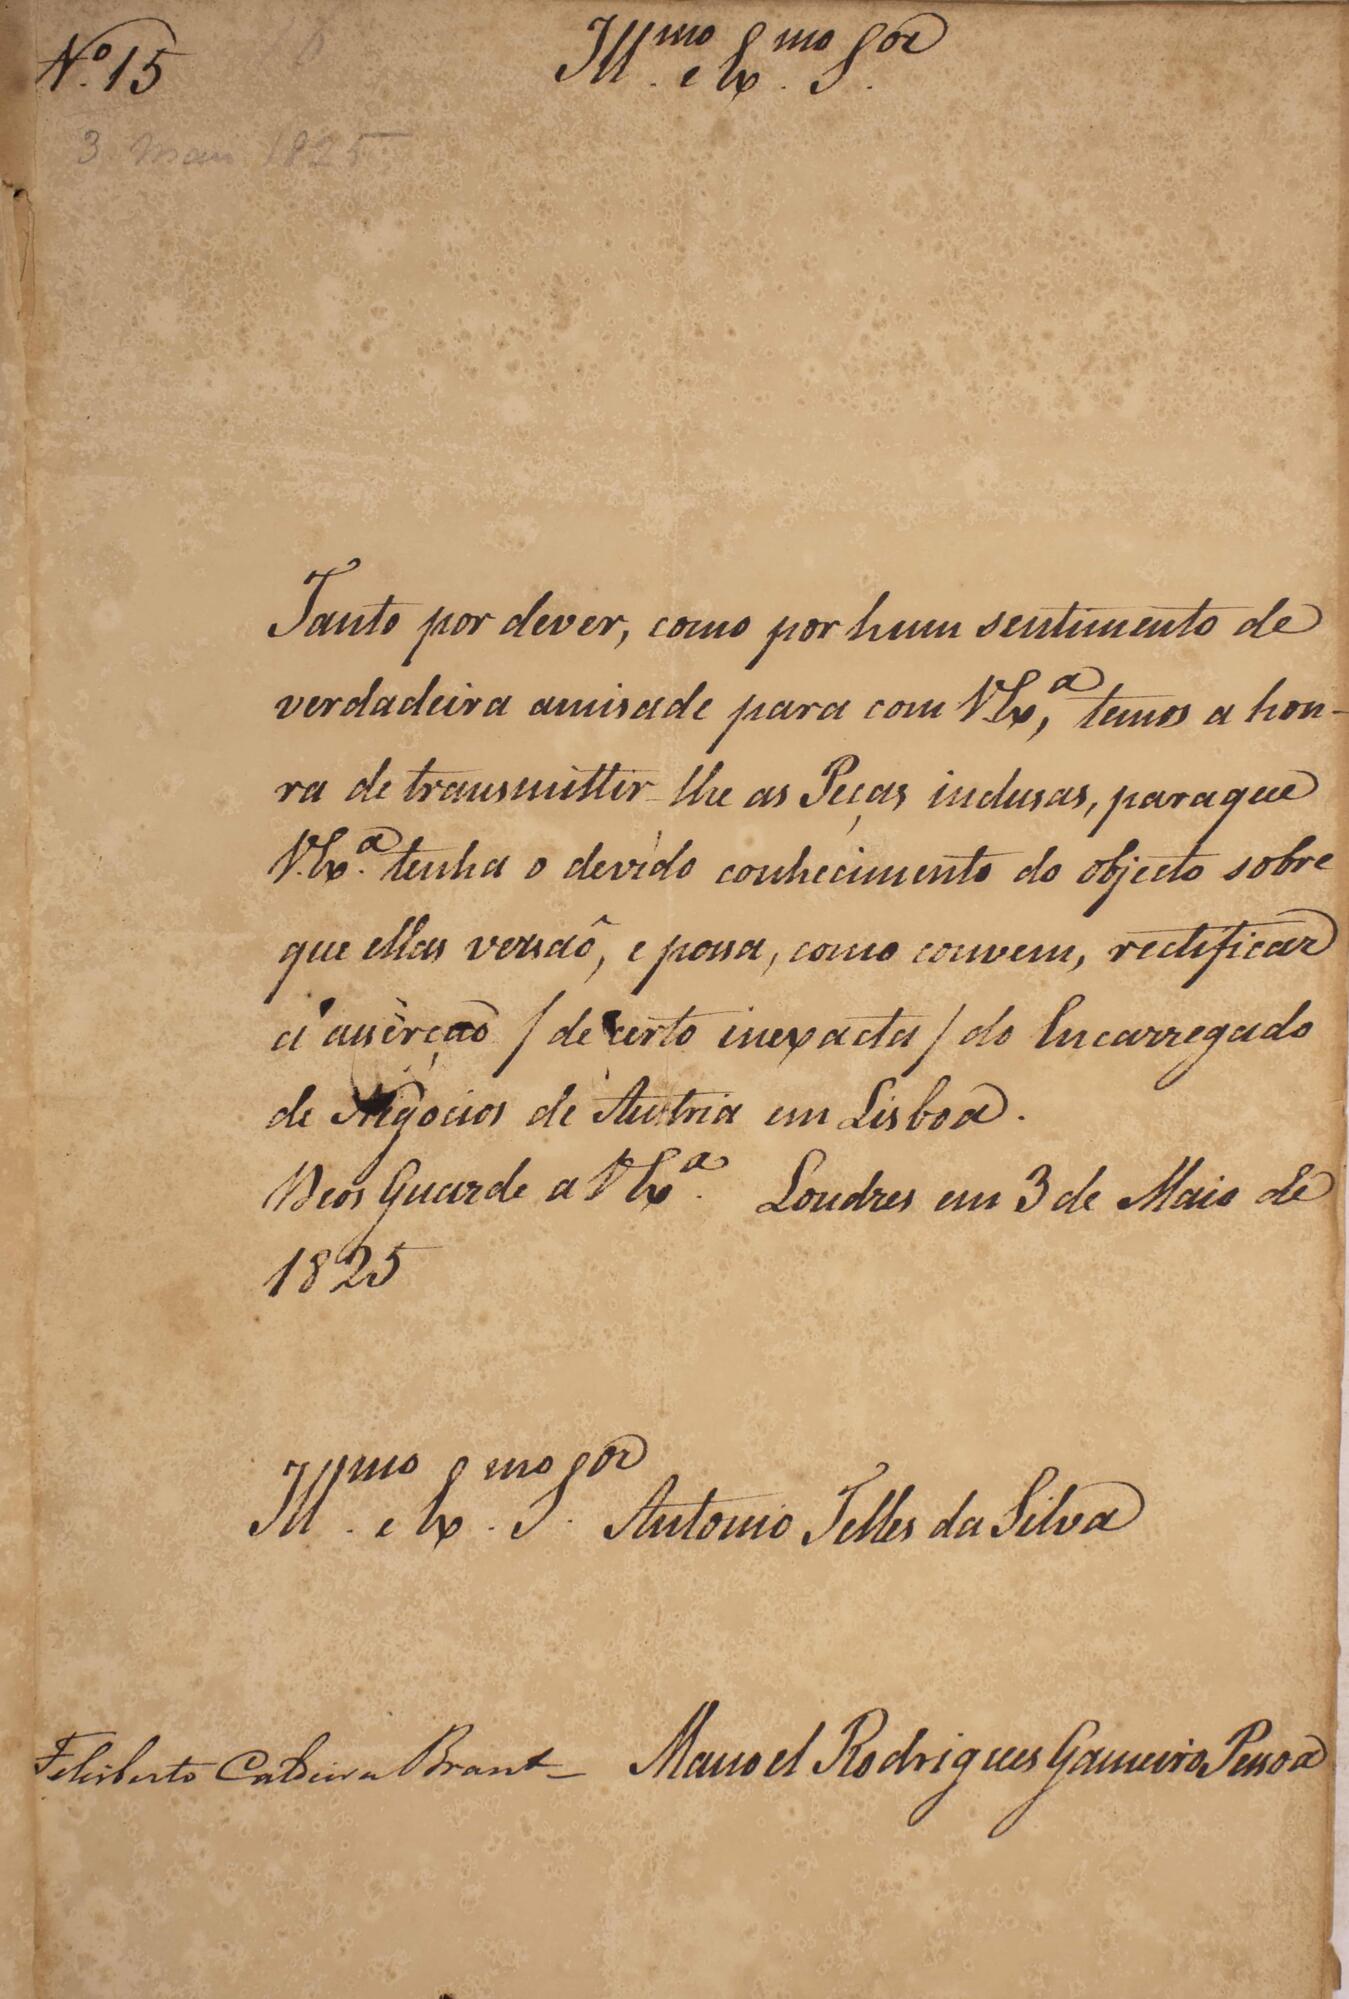 Nº 15
Illmo e Exmo Sor
3 Maio 1825
Tanto por dever, como por hum sentimento de
verdadeira amisade para com V.Exa, temos a hon-
ra de transmittir-lhe as Peças inclusas, para que
V.Exa. tenha o devido conhecimento do objecto sobre
que ellas versaõ, e possa, como convem, rectificar
a asserçaõ / de certo inexacta / do Encarregado
de Negocios de Austria em Lisboa.
Deos Guarde a V Exa. Londres em 3 de Maio de
1825
Illmo. e Exmo. Sor. Antonio Telles da Silva
Felisberto Caldeira Brant - Manoel Rodrigues Gameiro Pessoa